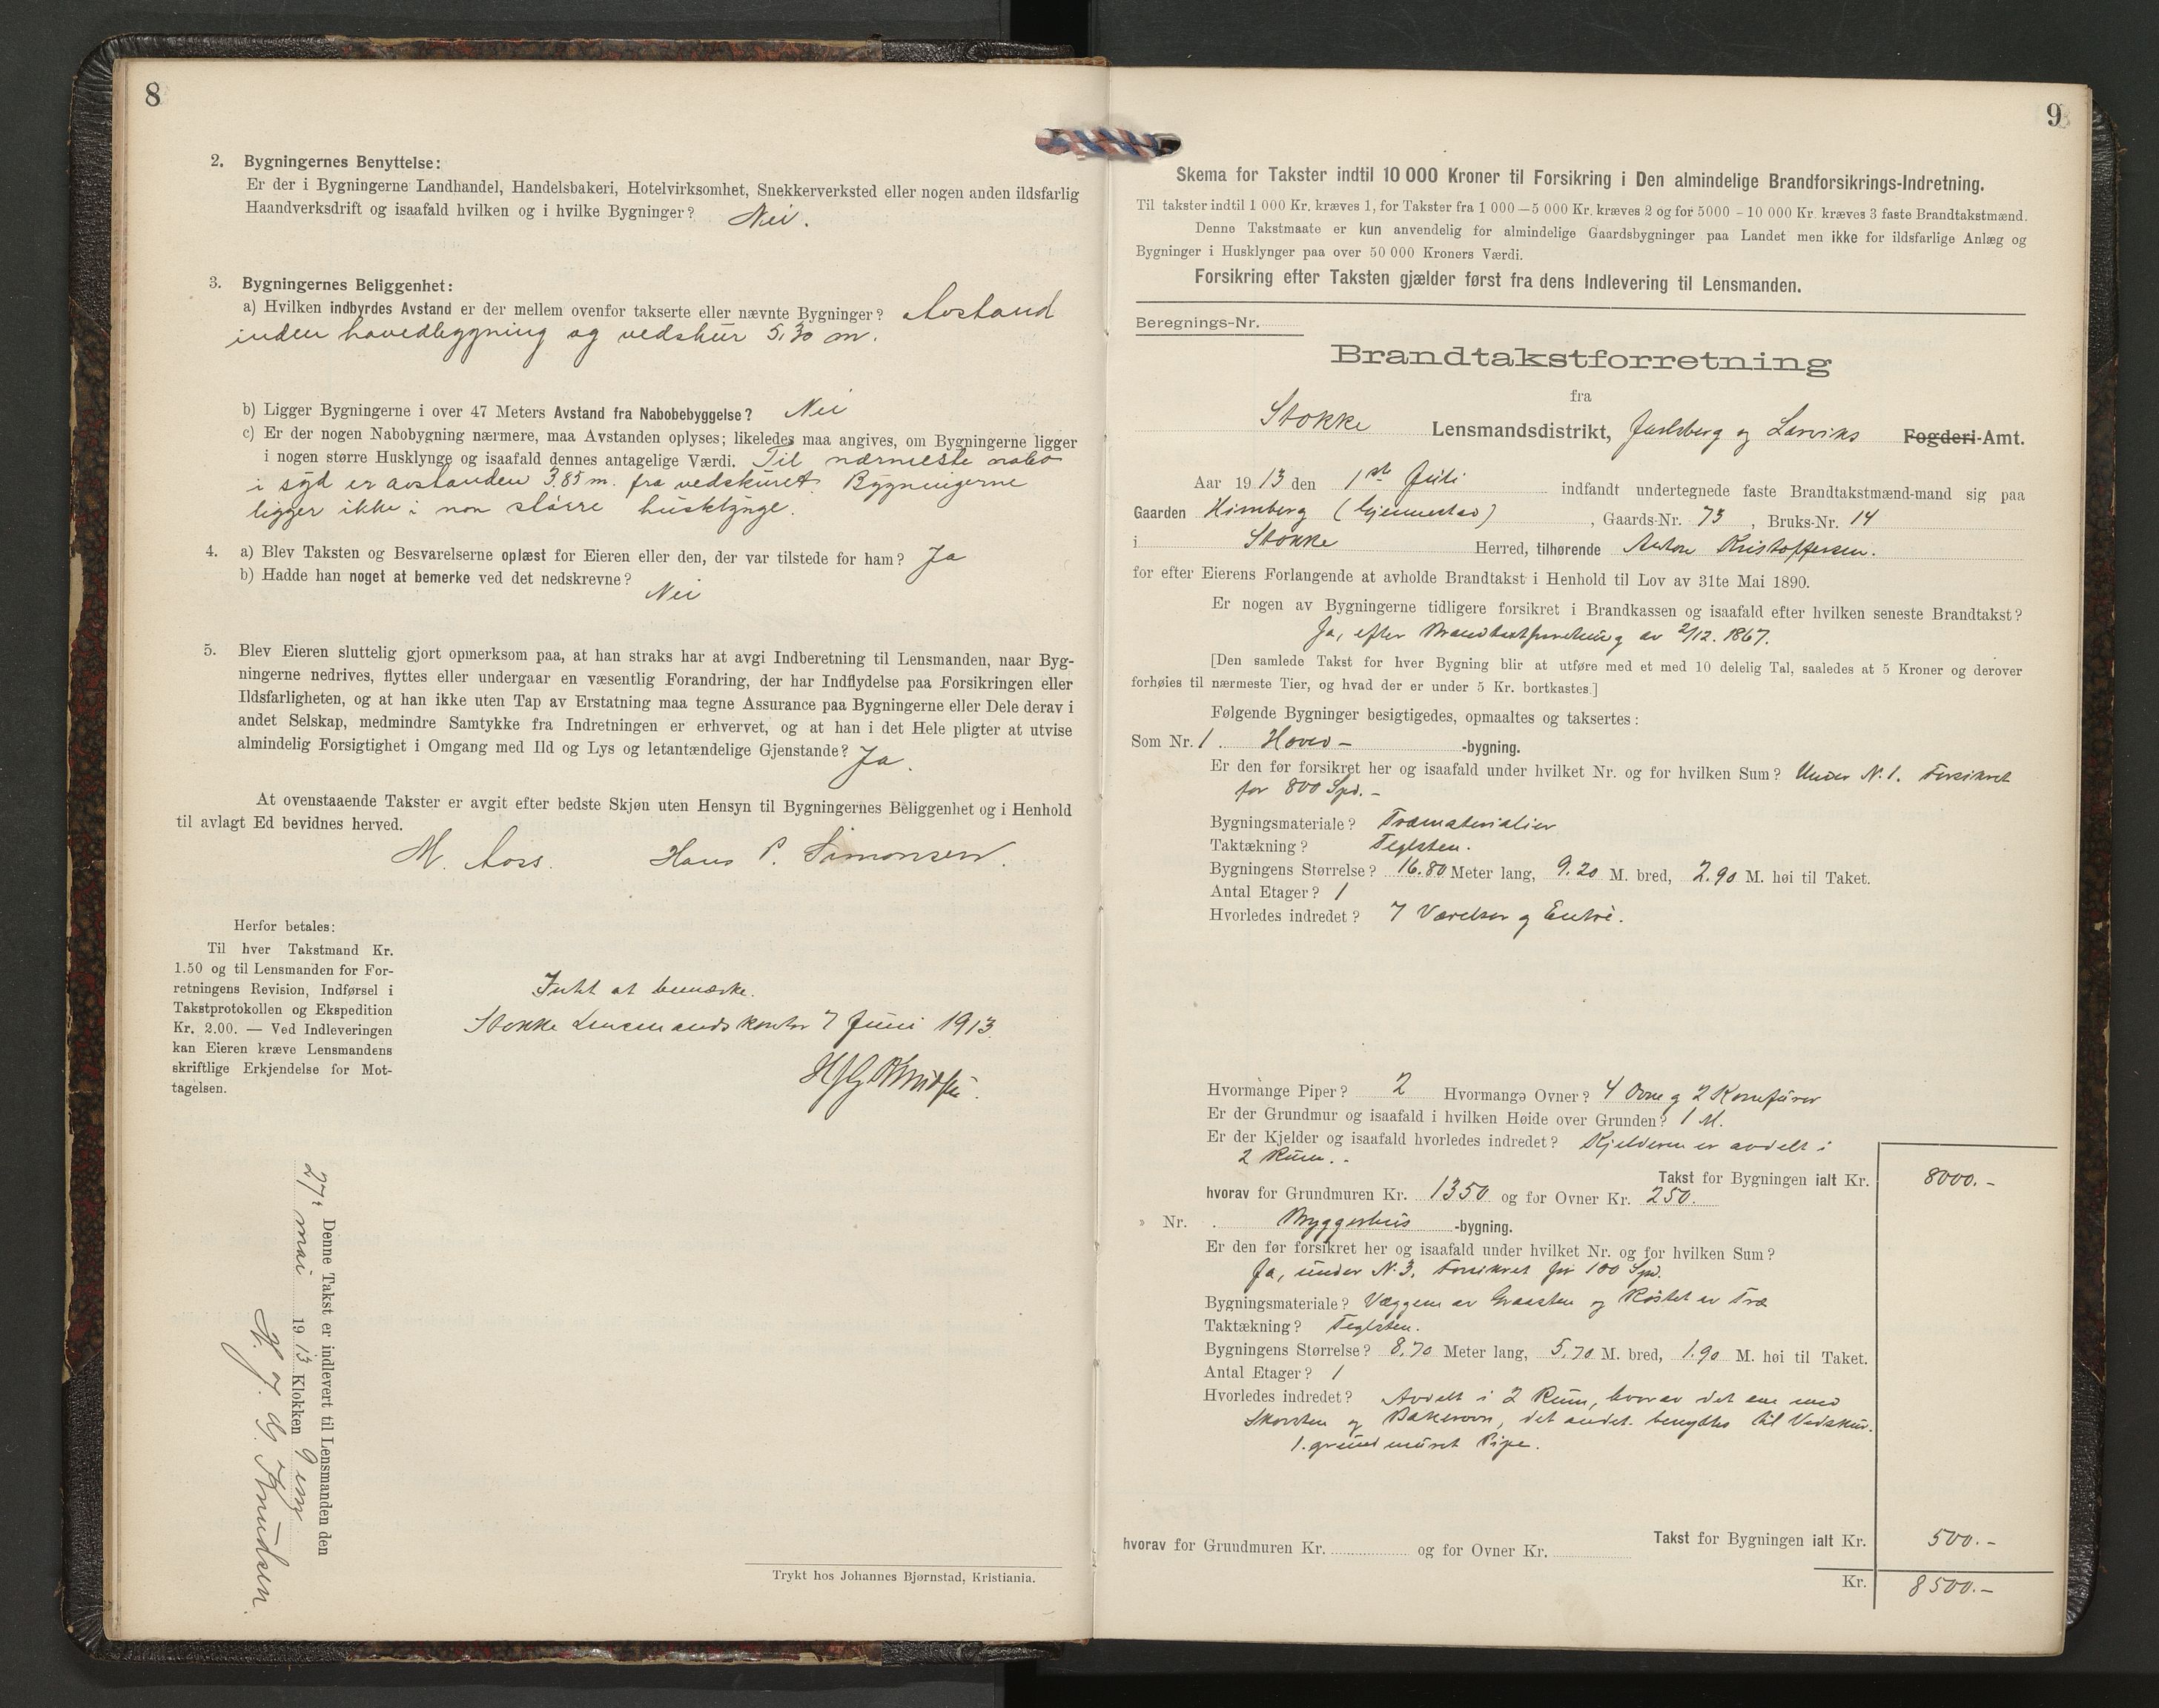 8
2. Bygningernes Benyttelse:
Er der i Bygningerne Landhandel, Handelsbakeri, Hotelvirksomhet, Snekkerverksted eller nogen anden ildsfarlig
Haandverksdrift og isaafald hvilken og i hvilke Bygninger? Nei.
3. Bygningernes Beliggenhet:
a) Hvilken indbyrdes Avstand er der mellem ovenfor takserte eller nævnte Bygninger? Avstand
inden hovedbygning og vedskur 5,30 m.
b) Ligger Bygningerne i over 47 Meters Avstand fra Nabobebyggelse? Nei
c) Er der nogen Nabobygning nærmere, maa Avstanden oplyses; likeledes maa angives, om Bygningerne ligger
i nogen større Husklynge og isaafald dennes antagelige Værdi. Til nærmeste nabo
i syd er avstanden 3.85 m. fra vedskuret. Bygningerne
ligger ikke i non større husklynge.
4. a) Blev Taksten og Besvarelserne oplæst for Eieren eller den, der var tilstede for ham? Ja
b) Hadde han noget at bemerke ved det nedskrevne?
Nei
5. Blev Eieren sluttelig gjort opmerksom paa, at han straks har at avgi Indberetning til Lensmanden, naar Byg-
ningerne nedrives, flyttes eller undergaar en væsentlig Forandring, der har Indflydelse paa Forsikringen eller
Ildsfarligheten, og at han ikke uten Tap av Erstatning maa tegne Assurance paa Bygningerne eller Dele derav i
andet Selskap, medmindre Samtykke fra Indretningen er erhvervet, og at han i det Hele pligter at utvise
almindelig Forsigtighet i Omgang med Ild og Lys og letantændelige Gjenstande? Ja.
At ovenstaaende Takster er avgit efter bedste Skjøn uten Hensyn til Bygningernes Beliggenhet og i Henhold
til avlagt Ed bevidnes herved.
M. Aoss. Hans P. Simonsen.
Herfor betales:
Til hver Takstmand Kr.
1.50 og til Lensmanden for For-
retningens Revision, Indførsel i
Takstprotokollen og Ekspedition
Kr. 2.00. — Ved Indleveringen
kan Eieren kræve Lensmandens
skriftlige Erkjendelse for Mot-
tagelsen.
Intet at bemærke.
Stokke Lensmandskontor 7 Juni 1913.
HJG Knudsen.
Denne Takst er indlevert til Lensmanden den
27 mai 1913 Klokken 9 em
H. J. G. Knudsen.
Trykt hos Johannes Bjørnstad, Kristiania.
9
Skema for Takster indtil 10 000 Kroner til Forsikring i Den almindelige Brandforsikrings-Indretning.
Til takster indtil 1 000 Kr. kræves 1, for Takster fra 1 000 — 5 000 Kr. kræves 2 og for 5000 - 10 000 Kr. kræves 3 faste Brandtakstmænd.
Denne Takstmaate er kun anvendelig for almindelige Gaardsbygninger paa Landet men ikke for ildsfarlige Anlæg og
Bygninger i Husklynger paa over 50 000 Kroners Værdi.
Forsikring efter Taksten gjælder først fra dens Indlevering til Lensmanden.
Beregnings-Nr.
Brandtakstforretning
fra
Stokke Lensmandsdistrikt, Jarlsberg og Larviks Fogderi-Amt.
Aar 1913 den 1st Juli indfandt undertegnede faste Brandtakstmænd-mand sig paa
Gaarden Himberg (Gjennestad), Gaards-Nr. 73, Bruks-Nr. 14
i Stokke Herred, tilhørende Anton Kristoffersen.
for efter Eierens Forlangende at avholde Brandtakst i Henhold til Lov av 31te Mai 1890.
Er nogen av Bygningerne tidligere forsikret i Brandkassen og isaafald efter hvilken seneste Brandtakst?
Ja, efter Brandtakstforretning av 2/12. 1867.
[Den samlede Takst for hver Bygning blir at utføre med et med 10 delelig Tal, saaledes at 5 Kroner og derover
forhøies til nærmeste Tier, og hvad der er under 5 Kr. bortkastes.]
Følgende Bygninger besigtigedes, opmaaltes og taksertes:
Som Nr. 1. Hoved- -bygning.
Er den før forsikret her og isaafald under hvilket Nr. og for hvilken Sum? Under N. 1. Forsikret
for 800 Spd. -
Bygningsmateriale? Træmaterialier
Taktækning? Teglsten.
Bygningens Størrelse? 16.80 Meter lang, 9.20 M. bred, 2.90 M. høi til Taket.
Antal Etager? 1
Hvorledes indredet? 7 Værelser og Entrè.
Hvormange Piper? 2 Hvormange Ovner? 4 Ovne og 2 Komfurer
Er der Grundmur og isaafald i hvilken Høide over Grunden? 1 M.
Er der Kjelder og isaafald hvorledes indredet? Kjelderen er avdelt i
2 Rum. -
Takst for Bygningen ialt Kr. 8000.-
hvorav for Grundmuren Kr. 1350 og for Ovner Kr. 250.
» Nr. . Bryggerhus -bygning.
Er den før forsikret her og isaafald under hvilket Nr. og for hvilken Sum?
Ja, under N. 3. Forsikret for 100 Spd.
Bygningsmateriale? Væggene av Graasten og Røstet av Træ
Taktækning? Teglsten.
Bygningens Størrelse? 8,70 Meter lang, 5,70 M. bred, 1.90 M. høi til Taket.
Antal Etager? 1
Hvorledes indredet? Avdelt i 2 Rum, hvorav det ene med
Skorsten og Bakerovn, det andet benyttes til Vedskur.
1. grundmuret Pipe.
Takst for Bygningen ialt Kr. 500.-
hvorav for Grundmuren Kr. og for Ovner Kr.
Kr. 8500.-